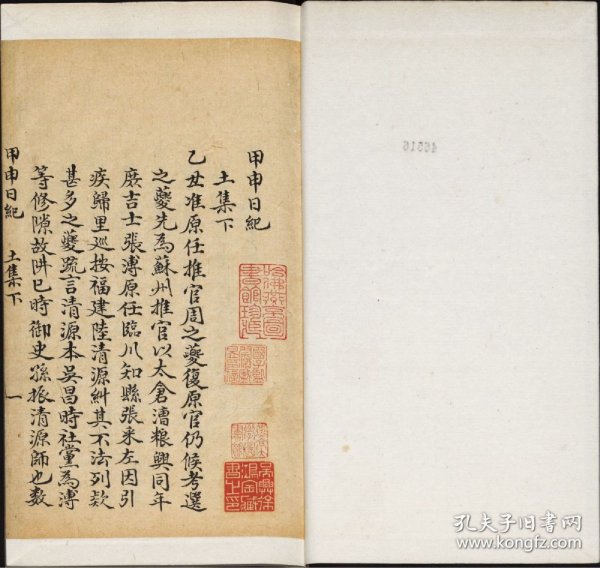 甲申日紀
土集下
乙丑准原任推官周之夔復原官仍候考選
之夔先為蘇州推官以太倉漕粮與同年
庶吉士張溥原任臨川知縣張采左因引
疾歸里巡按福建陸清源糾其不法列欵
甚多之夔疏言清源本吳昌時社黨為溥
等修隙故阱已時御史孫振清源師也數
甲申日紀 土集下 一
吳興徐
鴻寶藏
書之印
46516
孔夫子旧书网
www.kongfz.com